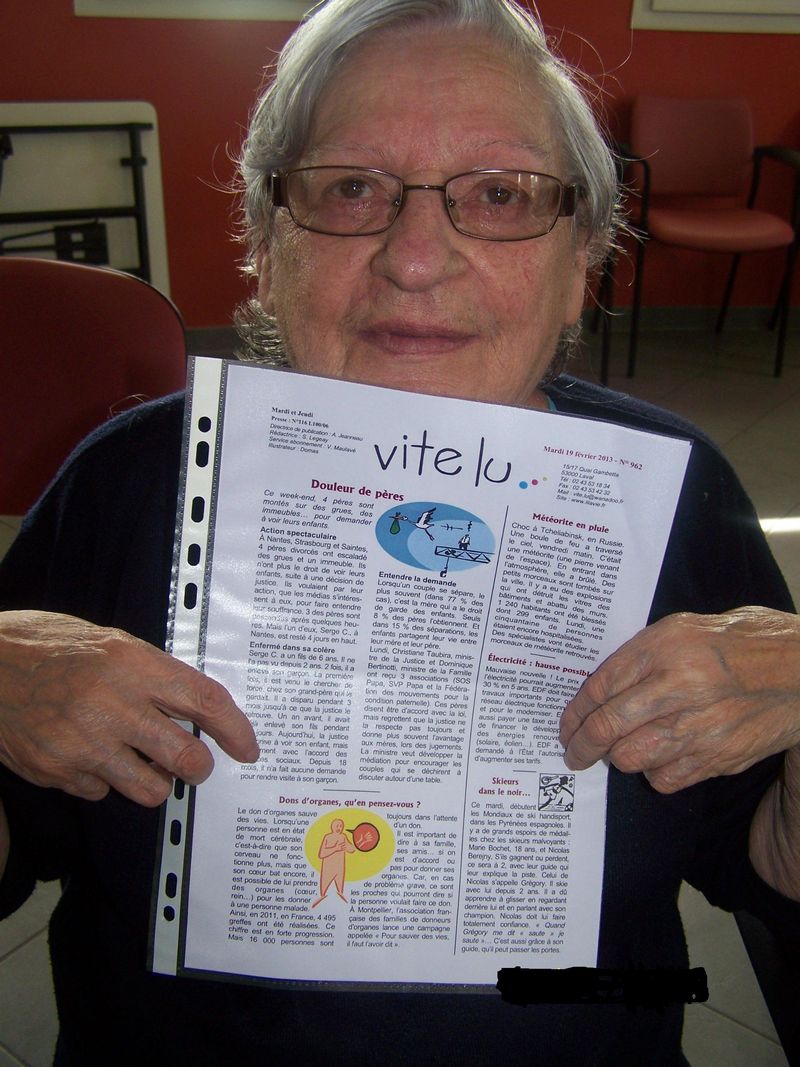 Mardi et Jeudi
Presse : N°116 L100/06
Directrice de publication : A. Jeanneau
Rédactrice : S. Legeay
Service abonnement : V. Maulavé
Illustrateur : Domas
vite lu
Mardi 19 février 2013 - N° 962
15/17 Quai Gambetta
53000 Laval
Tél : 02 43 53 18 34
Fax : 02 43 53 42 32
Mail : vite.lu@wanadoo.fr
Douleur de pères
Ce week-end, 4 pères sont
montés sur des grues, des
immeubles… pour demander
à voir leurs enfants.
Action spectaculaire
À Nantes, Strasbourg et Saintes,
4 pères divorcés ont escaladé
des grues et un immeuble. Ils
n'ont plus le droit de voir leurs
enfants, suite à une décision de
justice. Ils voulaient par leur
action, que les médias s'intéres-
sent à eux, pour faire entendre
leur souffrance. 3 des pères sont
descendus après quelques heu-
res. Mais l'un d'eux, Serge C., à
Nantes, est resté 4 jours en haut.
Enfermé dans sa colère
Serge C. a un fils de 6 ans. Il ne
l'a pas vu depuis 2 ans. 2 fois, il a
enlevé son garçon. La première
fois, il est venu le chercher de
force, chez son grand-père qui le
gardait. Il a disparu pendant 3
mois jusqu'à ce que la justice le
retrouve. Un an avant, il avait
déjà enlevé son fils pendant
jours. Aujourd'hui, la justice
à voir son enfant, mais
avec l'accord des
sociaux. Depuis 18
mois, il n'a fait aucune demande
pour rendre visite à son garçon.
Entendre la demande
Lorsqu'un couple se sépare, le
plus souvent (dans 77 % des
cas), c'est la mère qui a le droit
de garde des enfants. Seuls
8 % des pères l'obtiennent. Et
dans 15 % des séparations, les
enfants partagent leur vie entre
leur mère et leur père.
Lundi, Christiane Taubira, minis-
tre de la Justice et Dominique
Bertinotti, ministre de la Famille
ont reçu 3 associations (SOS
Papa, SVP Papa et la Fédéra-
tion des mouvements pour la
condition paternelle). Ces pères
disent être d'accord avec la loi,
mais regrettent que la justice ne
la respecte pas toujours et
donne plus souvent l'avantage
aux mères, lors des jugements.
La ministre veut développer la
médiation pour encourager les
couples qui se déchirent à
discuter autour d'une table.
Météorite en pluie
Choc à Tcheliabinsk, en Russie.
Une boule de feu a traversé
le ciel, vendredi matin. C'était
une météorite (une pierre venant
de l'espace). En entrant dans
l'atmosphère, elle a brûlé. Des
petits morceaux sont tombés sur
la ville. Il y a eu des explosions
qui ont détruit les vitres des
bâtiments et abattu des murs.
1 240 habitants ont été blessés
dont 299 enfants. Lundi, une
cinquantaine de personnes
étaient encore hospitalisées.
Des spécialistes vont étudier les
morceaux de météorite retrouvés.
Électricité : hausse possible
Mauvaise nouvelle ! Le prix
l'électricité pourrait augmenter
30 % en 5 ans. EDF doit faire
travaux importants pour
réseau électrique fonctionne
et pour le moderniser. E
aussi payer une taxe qui
de financer le développ
des énergies renouve
(solaire, éolien…). EDF a
demandé à l'État l'autoris
d'augmenter ses tarifs.
Skieurs
dans le noir…
Ce mardi, débutent
les Mondiaux de ski handisport,
dans les Pyrénées espagnoles. Il
y a de grands espoirs de médail-
les chez les skieurs malvoyants :
Marie Bochet, 18 ans, et Nicolas
Berejny. S'ils gagnent ou perdent,
ce sera à 2, avec leur guide qui
leur explique la piste. Celui de
Nicolas s'appelle Grégory. Il skie
avec lui depuis 2 ans. Il a dû
apprendre à glisser en regardant
derrière lui et en parlant avec son
champion. Nicolas doit lui faire
totalement confiance. « Quand
Grégory me dit « saute » je
saute »… C'est aussi grâce à son
guide, qu'il peut passer les portes.
Dons d'organes, qu'en pensez-vous ?
Le don d'organes sauve
des vies. Lorsqu'une
personne est en état
de mort cérébrale,
c'est-à-dire que son
cerveau ne fonc-
tionne plus, mais que
son cœur bat encore, il
est possible de lui prendre
des organes (cœur,
rein…) pour les donner
à une personne malade.
Ainsi, en 2011, en France, 4 495
greffes ont été réalisées. Ce
chiffre est en forte progression.
Mais 16 000 personnes sont
toujours dans l'attente
d'un don.
Il est important de
dire à sa famille,
ses amis… si on
est d'accord ou
pas pour donner ses
organes. Car, en cas
de problème grave, ce sont
les proches qui pourront dire si
la personne voulait faire ce don.
À Montpellier, l'association fran-
çaise des familles de donneurs
d'organes lance une campagne
appelée « Pour sauver des vies,
il faut l'avoir dit ».